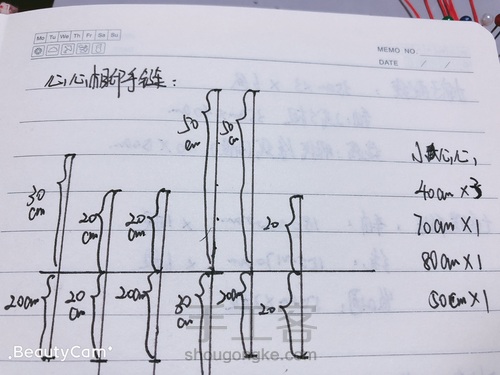 Mo Tu We Th Fr Sa Su
MEMO NO.
DATE / /
心心相印手链:
50cm 50cm
30cm 20cm 20cm 20
20cm 20cm 20cm 30cm 20cm 20
小心心
40cm×3
70cm×1
80cm×1
50cm×1
BeautyCam
手工客
shougongke.com